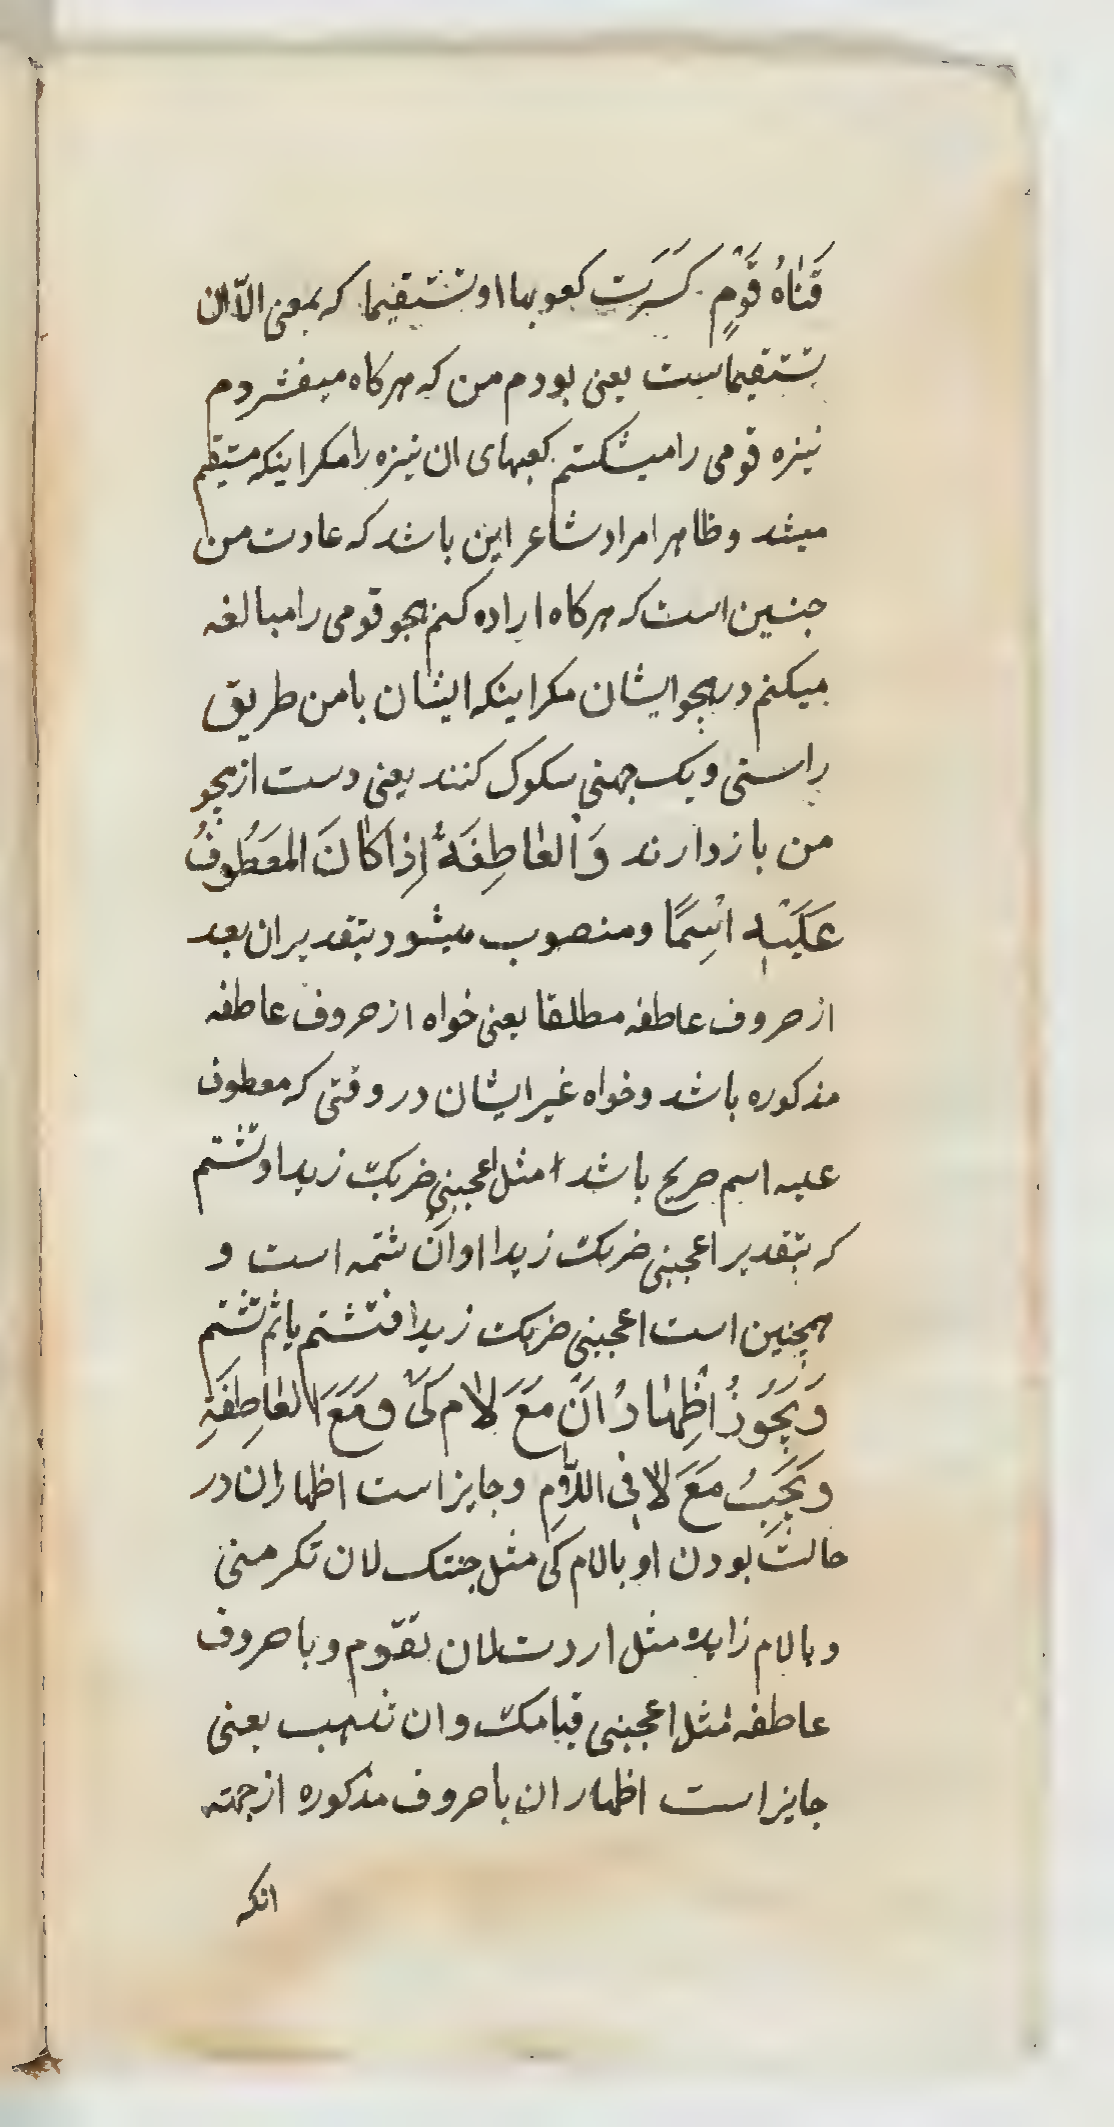 قَنٰاهُ قَوْمٍ كَسَرَت كعوبها او تستقیما که بمعنی الّا ان
تستقیماست یعنی بودم من که هرکاه میفشردم
نیزه قومی را میشکستم کعبهای ان نیزه را مکر اینکه مستقیم
میشد و ظاهرا مراد شاعر این باشد که عادت من
جنین است که هرکاه اراده کنم هجو قومی را مبالغه
میکنم در هجو ایشان مکر اینکه ایشان با من طریق
راستی و یک جهتی سکوک کنند یعنی دست از هجو
من باز دارند وَ الْعٰاطِفَةُ اِذٰا كٰانَ المَعَطُوفُ
عَلَيْهِ اِسْمًا و منصوب میشود بتقدیر ان بعد
از حروف عاطفه مطلقا یعنی خواه از حروف عاطفه
مذکوره باشد و خواه غیر ایشان در وقتی که معطوف
علیه اسم صریح باشد مثل اعجبنی ضربک زیدا او تشتم
که بتقدیر اعجبنی ضربک زیدا او ان شتمه است و
همچنین است اعجبنی ضربک زیدا فتشتم یا ثم تشتم
وَ يَجُوزُ اِظْهٰارُ اَنْ مَعَ لٰام كَىْ وَ مَعَ الْعٰاطِفَةِ
وَ يَجِبُ مَعَ لٰا فِی اللّٰامِ و جایز است اظهار ان در
حالت بودن او با لام کی مثل جئتک لان تکرمنی
و با لام زایده مثل اردت لان تقوم و با حروف
عاطفه مثل اعجبنی قیامک و ان تذهب یعنی
جایز است اظهار ان با حروف مذکوره از جهته
انکه